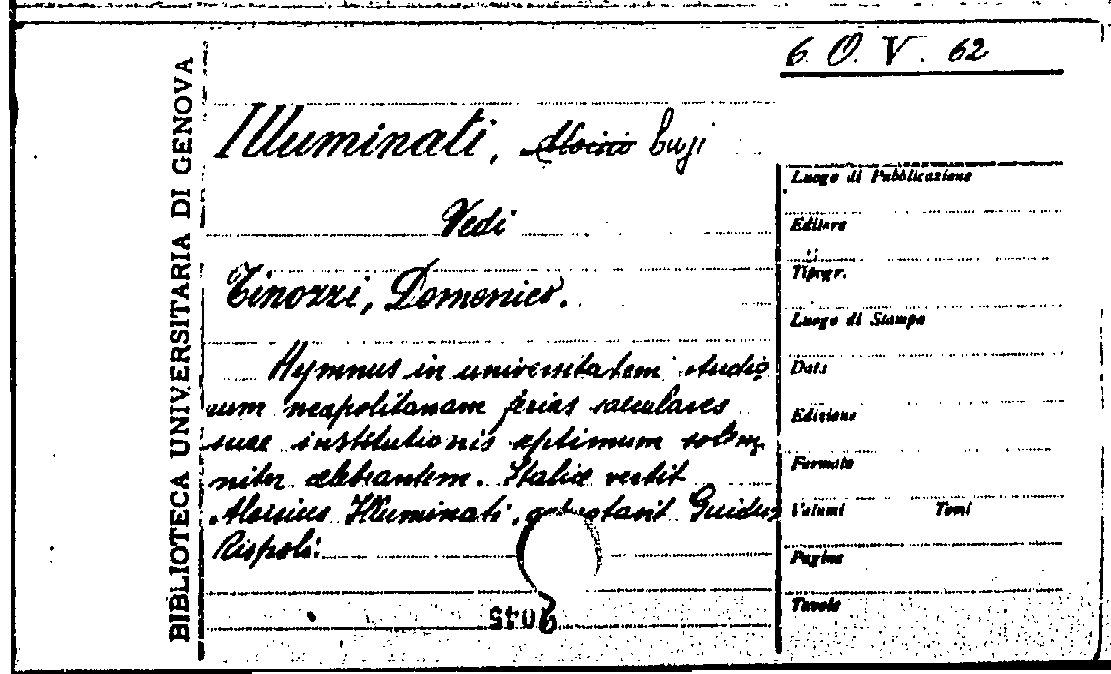 6. O. V. 62
BIBLIOTECA UNIVERSITARIA DI GENOVA
Illuminati, Luigi
Vedi
Tinozzi, Domenico.
Hymnus in universitatem studio
rum neapolitanam ferias saeculares
suae institutionis septimum solem
niter celebrantem. Italice vertit
Aloisius Illuminati, Guidus
Rispoli.
Luogo di Pubblicazione
Editore
Tipogr.
Luogo di Stampa
Data
Edizione
Formato
Volumi Tomi
Pagine
Tavole